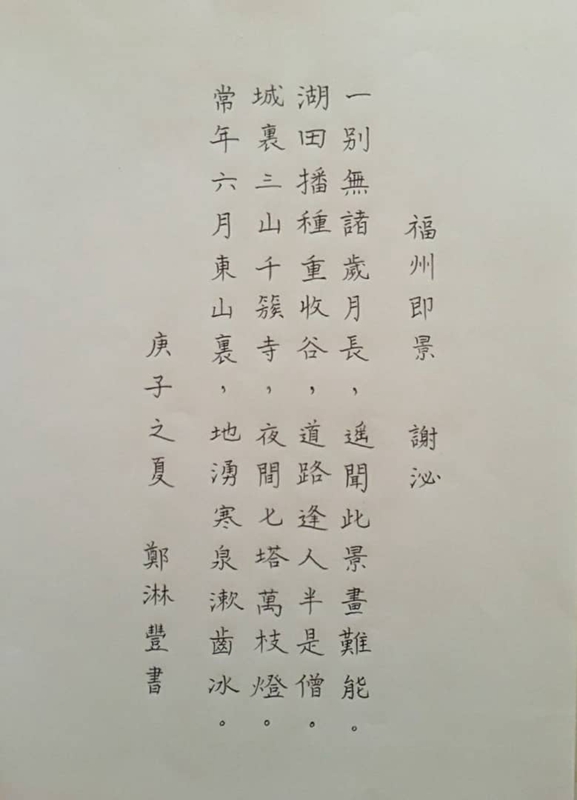 福州即景　謝泌
一別無諸歲月長，遥聞此景畫難能。
湖田播種重收谷，道路逢人半是僧。
城裏三山千簇寺，夜間七塔萬枝燈。
常年六月東山裏，地湧寒泉漱齒冰。
庚子之夏　鄭淋豐書